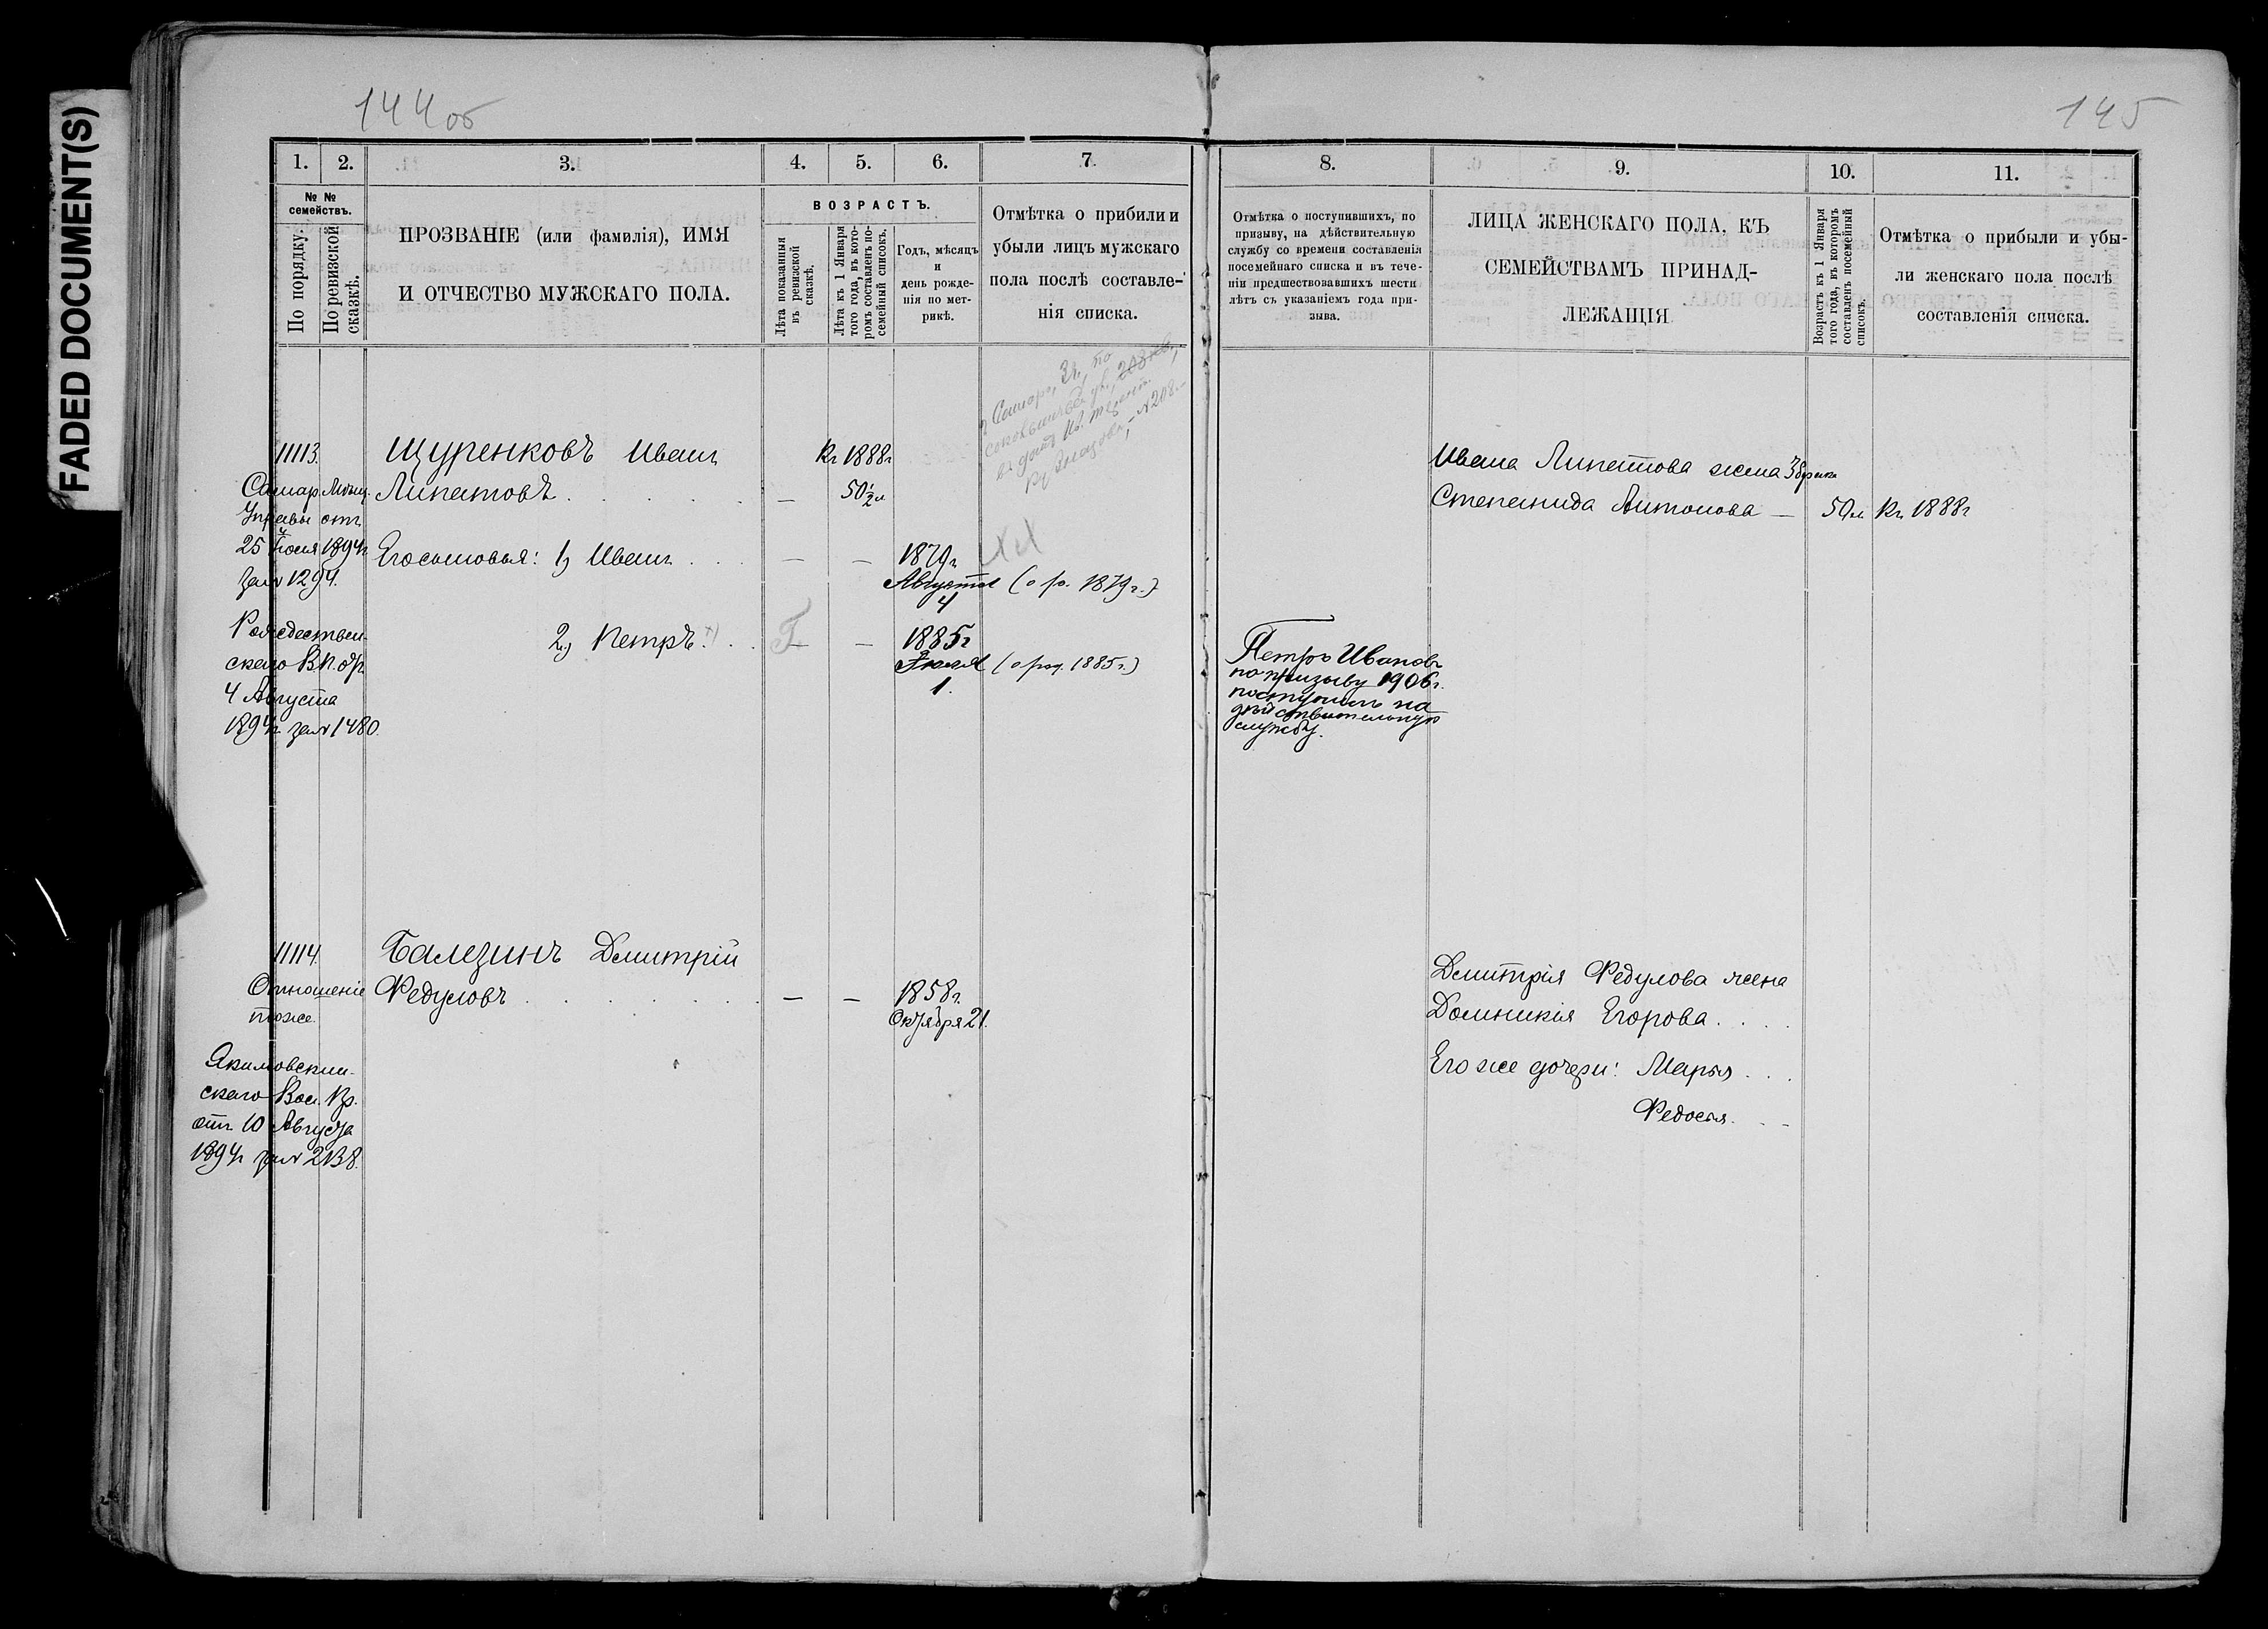 FADED DOCUMENT(S)
144 об
145
1. 2. 3. 4. 5. 6. 7.
№ № семействъ.
По порядку.
По ревизской сказкѣ.
ПРОЗВАНІЕ (или фамилія), ИМЯ
И ОТЧЕСТВО МУЖСКАГО ПОЛА.
ВОЗРАСТЪ.
Лѣта показанныя въ ревизской сказкѣ.
Лѣта къ 1 Января того года, въ которомъ составленъ посемейный списокъ.
Годъ, мѣсяцъ
и
день рожде-
нія по мет-
рикѣ.
Отмѣтка о прибыли и
убыли лицъ мужскаго
пола послѣ составле-
нія списка.
г. Самара, 3 ч., по
11113. Щуренковъ Иванъ Къ 1888г
Самар. Мѣщ. Липатовъ . . . . . — 50½ л
Управы отъ
25 Іюля 1894г Его сыновья: 1) Иванъ . . . — — 1879г
за № 1294. Августа (о р. 1879 г.)
4
Рождествен- 2) Петръ . . — — 1885г
скаго В. П. отъ Іюля (о род. 1885 г.)
4 Августа 1.
1894г за № 1480.
11114. Балезинъ Дмитрій
Отношеніе Федуловъ . . . . . . . — — 1858г.
тоже. Октября 21.
скаго Вол. Пр.
отъ 10 Августа
1894г за № 2138.
8. 9. 10. 11.
Отмѣтка о поступившихъ, по
призыву, на дѣйствительную
службу со времени составленія
посемейнаго списка и въ тече-
ніи предшествовавшихъ шести
лѣтъ съ указаніемъ года при-
зыва.
ЛИЦА ЖЕНСКАГО ПОЛА, КЪ
СЕМЕЙСТВАМЪ ПРИНАД-
ЛЕЖАЩІЯ
Возрастъ къ 1 Января того года, въ которомъ составленъ посемейный списокъ.
Отмѣтка о прибыли и убы-
ли женскаго пола послѣ
составленія списка.
Ивана Липатова жена 3 брака
Степанида Антонова — 50 л Къ 1888г
Петръ Ивановъ
по призыву 1906 г.
поступилъ на
дѣйствительную
службу.
Дмитрія Федулова жена
Домникія Егорова . . . .
Его же дочери: Марья . . .
Федосья . . .